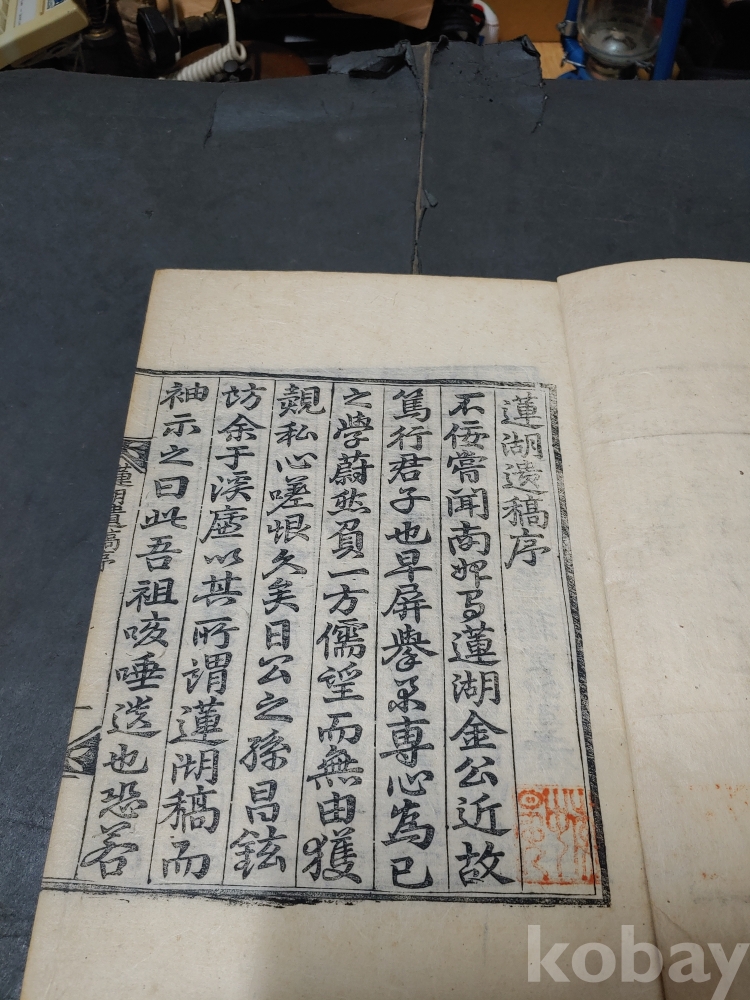 蓮湖遺稿序
不侫嘗聞南州有蓮湖金公近故
篤行君子也早屏擧業專心為已
之學蔚然負一方儒望而無由獲
覿私心嗟恨久矣日公之孫昌鉉
訪余于溪廬以其所謂蓮湖稿而
袖示之曰此吾祖咳唾遺也恐若
蓮湖遺稿序
kobay